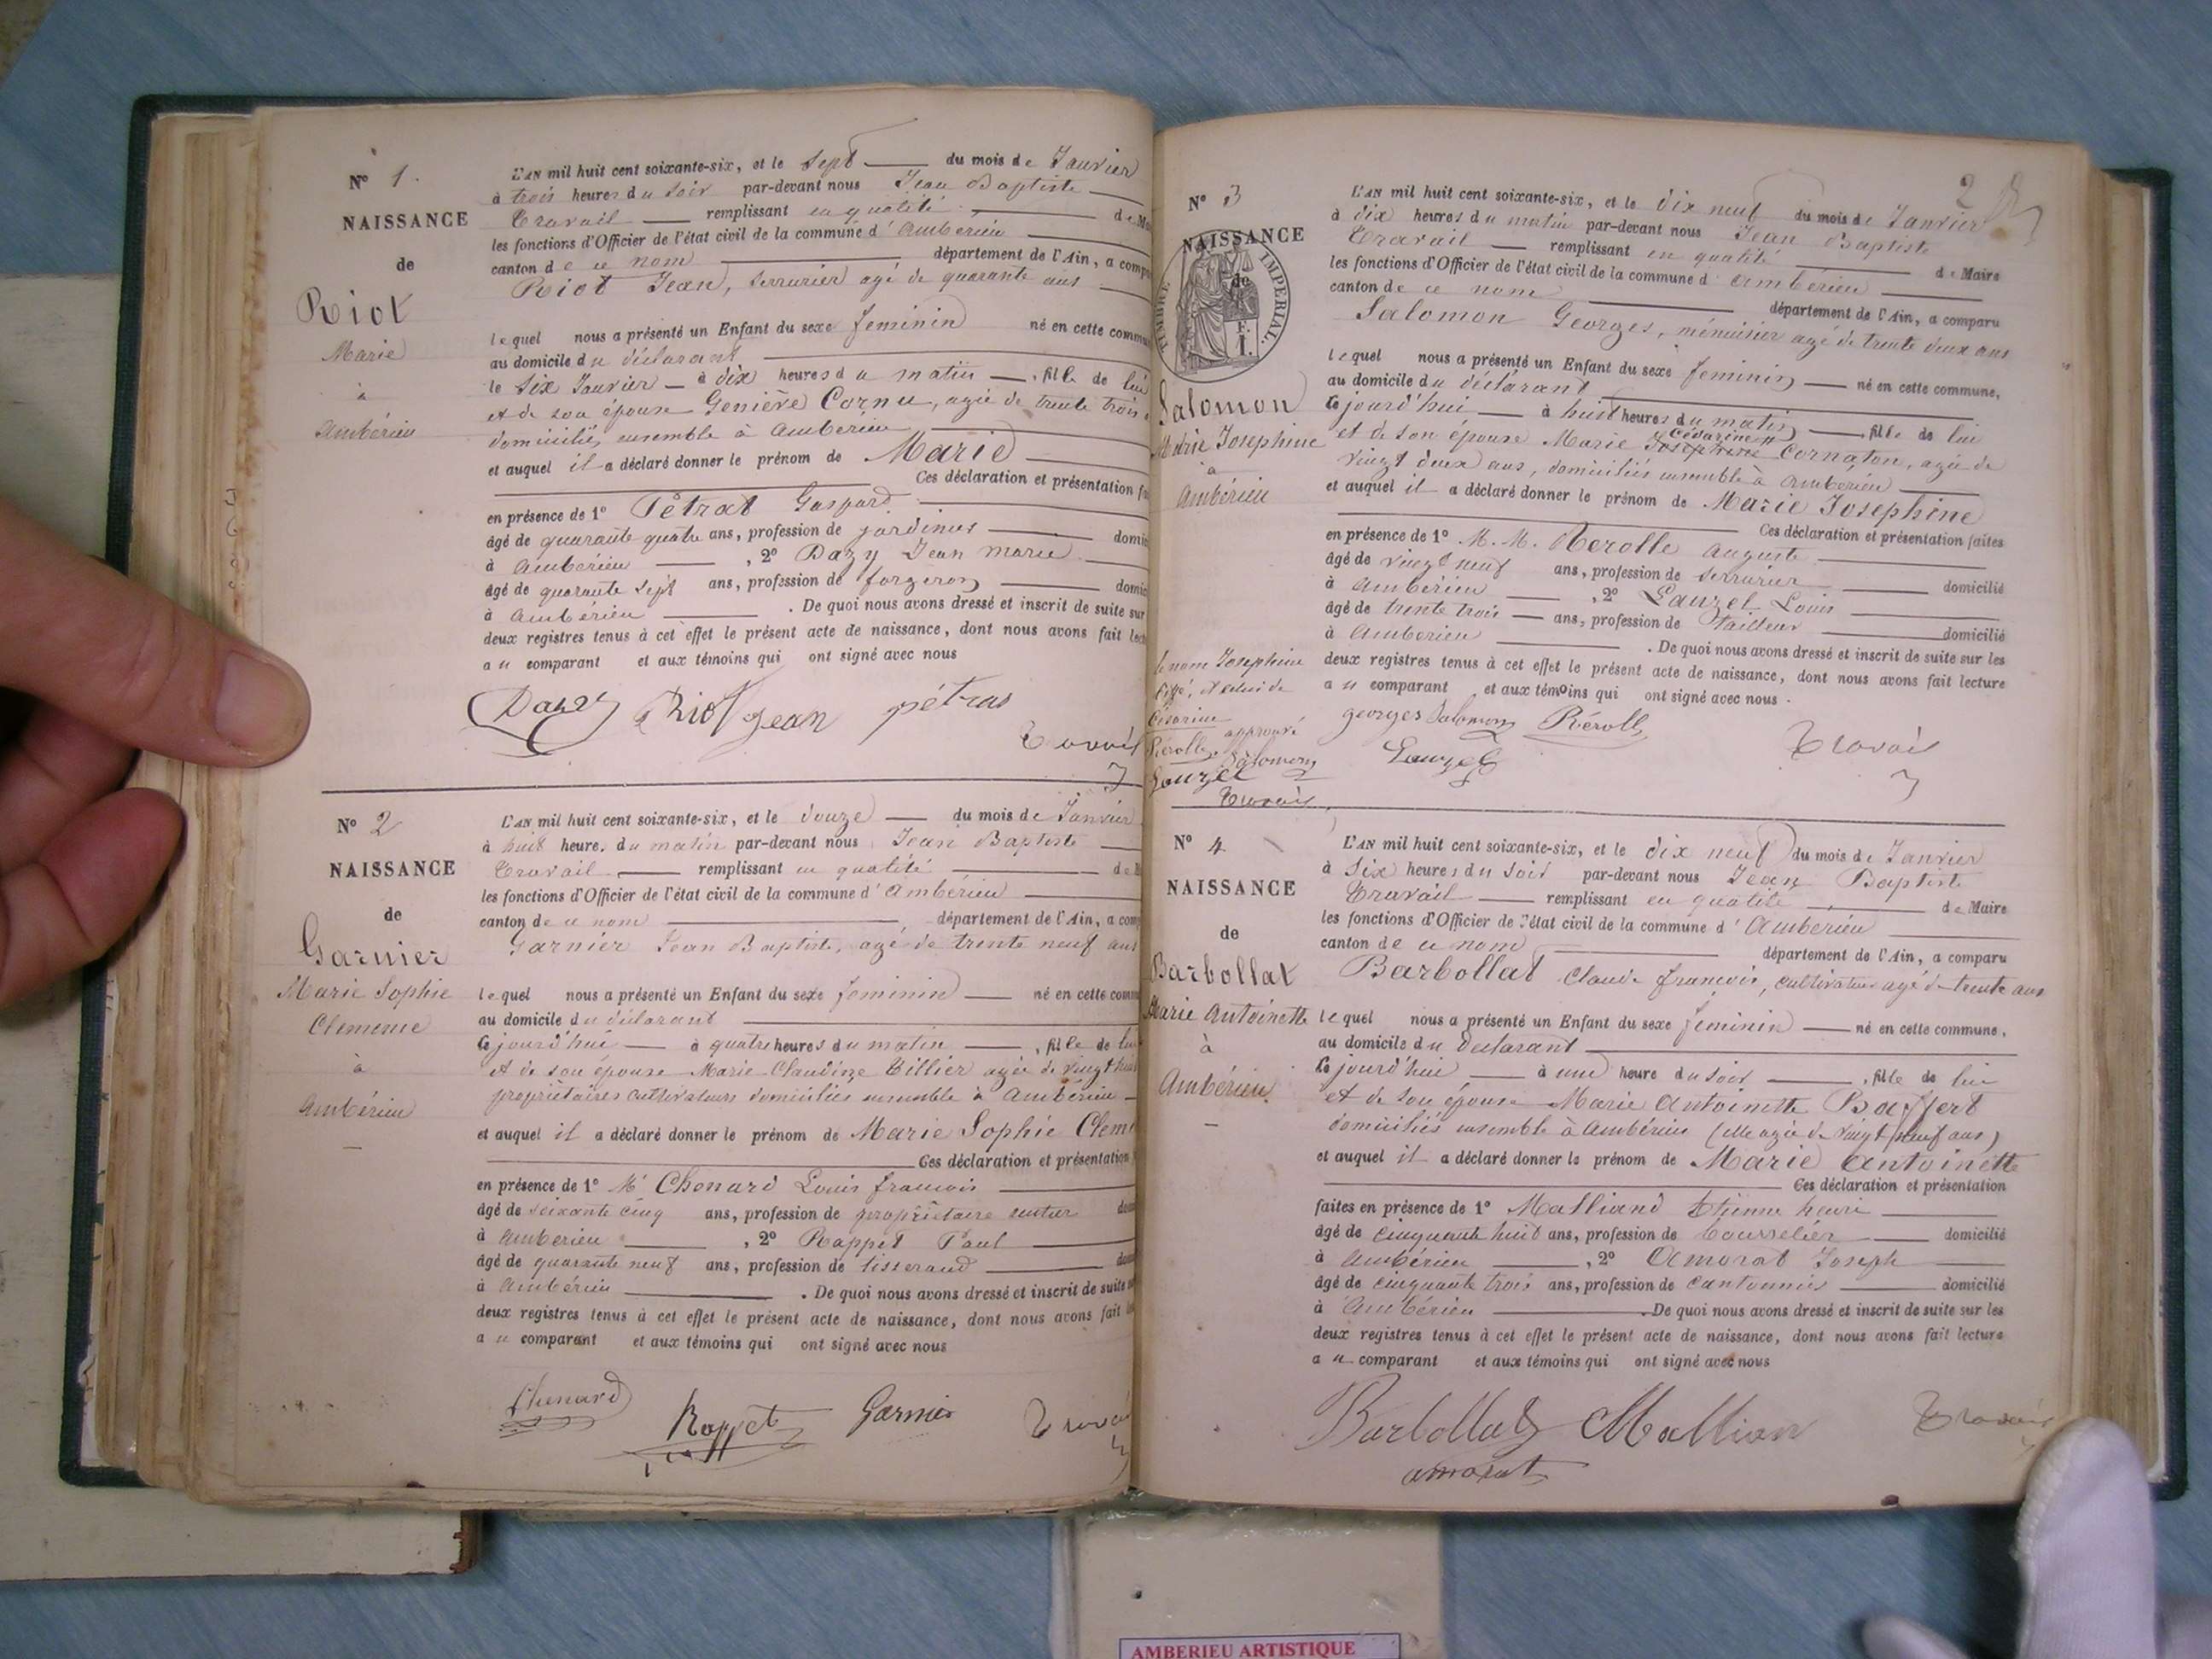 N° 1.
NAISSANCE
de
Riot
Marie
à
Ambérieu
L'AN mil huit cent soixante-six, et le sept du mois de Janvier
à trois heures du soir par-devant nous Jean Baptiste
Travail remplissant en qualité de M
les fonctions d'Officier de l'état civil de la commune d'Ambérieu
canton de ce nom département de l'Ain, a comp
Riot Jean, serrurier agé de quarante ans
lequel nous a présenté un Enfant du sexe feminin né en cette commu
au domicile du déclarant
le six Janvier à dix heures du matin, fille de lui
et de son épouse Geniève Cornu, agée de trente trois
domiciliés ensemble à Ambérieu
et auquel il a déclaré donner le prénom de Marie
Ces déclaration et présentation fai
en présence de 1° Pétrat Gaspard
âgé de quarante quatre ans, profession de jardinier domic
à Ambérieu, 2° Dazy Jean Marie
âgé de quarante sept ans, profession de forgeron domic
à Ambérieu. De quoi nous avons dressé et inscrit de suite sur
deux registres tenus à cet effet le présent acte de naissance, dont nous avons fait lect
au comparant et aux témoins qui ont signé avec nous
Dazy Riot Jean pétras
Travail
N° 2
NAISSANCE
de
Garnier
Marie Sophie
Clemence
à
Ambérieu
L'AN mil huit cent soixante-six, et le douze du mois de Janvier
à huit heures du matin par-devant nous Jean Baptiste
Travail remplissant en qualité de M
les fonctions d'Officier de l'état civil de la commune d'Ambérieu
canton de ce nom département de l'Ain, a comp
Garnier Jean Baptiste, agé de trente neuf ans
lequel nous a présenté un Enfant du sexe feminin né en cette comm
au domicile du déclarant
Ce jourd'hui à quatre heures du matin, fille de lui
et de son épouse Marie Claudine Tillier agée de vingt huit
propriétaires cultivateurs domiciliés ensemble à Ambérieu
et auquel il a déclaré donner le prénom de Marie Sophie Clem
Ces déclaration et présentation
en présence de 1° Mr Chenard Louis francois
âgé de soixante cinq ans, profession de propriétaire rentier dom
à Ambérieu, 2° Rappet Paul
âgé de quarante neuf ans, profession de tisserand dom
à Ambérieu. De quoi nous avons dressé et inscrit de suite
deux registres tenus à cet effet le présent acte de naissance, dont nous avons fait
au comparant et aux témoins qui ont signé avec nous
Chenard Rappet Garnier Travail
2
N° 3
NAISSANCE
de
TIMBRE IMPERIAL.
F.
I.
Salomon
Marie Josephine
à
Ambérieu
L'AN mil huit cent soixante-six, et le dix neuf du mois de Janvier
à dix heures du matin par-devant nous Jean Baptiste
Travail remplissant en qualité de Maire
les fonctions d'Officier de l'état civil de la commune d'Ambérieu
canton de ce nom département de l'Ain, a comparu
Salomon Georges, ménuisier agé de trente deux ans
lequel nous a présenté un Enfant du sexe feminin né en cette commune,
au domicile du déclarant
Ce jourd'hui à huit heures du matin, fille de lui
Césarine
et de son épouse Marie Josephine Cornaton, agée de
vingt deux ans, domiciliés ensemble à Ambérieu
et auquel il a déclaré donner le prénom de Marie Josephine
Ces déclaration et présentation faites
en présence de 1° M. M. Rerolle Auguste
âgé de vingt neuf ans, profession de serrurier domicilié
à Ambérieu, 2° Lauzel Louis
âgé de trente trois ans, profession de tailleur domicilié
à Ambérieu. De quoi nous avons dressé et inscrit de suite sur les
deux registres tenus à cet effet le présent acte de naissance, dont nous avons fait lecture
au comparant et aux témoins qui ont signé avec nous.
le nom Josephine
et celui de
Césarine
approuvé
Rérolle Salomon
Lauzel
Travail
georges Salomon Réroll
Lauzel
Travail
N° 4
NAISSANCE
de
Barbollat
Marie Antoinette
à
Ambérieu
L'AN mil huit cent soixante-six, et le dix neuf du mois de Janvier
à six heures du soir par-devant nous Jean Baptiste
Travail remplissant en qualité de Maire
les fonctions d'Officier de l'état civil de la commune d'Ambérieu
canton de ce nom département de l'Ain, a comparu
Barbollat Claude francois, cultivateur agé de trente ans
lequel nous a présenté un Enfant du sexe feminin né en cette commune,
au domicile du déclarant
Ce jourd'hui à une heure du soir, fille de lui
et de son épouse Marie Antoinette Baffert
domiciliés ensemble à Ambérieu (elle agée de vingt neuf ans)
et auquel il a déclaré donner le prénom de Marie Antoinette
Ces déclaration et présentation
faites en présence de 1° Malliand Etienne henri
âgé de cinquante huit ans, profession de bourrelier domicilié
à Ambérieu, 2° Amorat Joseph
âgé de cinquante trois ans, profession de cantonnier domicilié
à Ambérieu. De quoi nous avons dressé et inscrit de suite sur les
deux registres tenus à cet effet le présent acte de naissance, dont nous avons fait lecture
au comparant et aux témoins qui ont signé avec nous
Barbollat Mallian Travail
amorat
AMBERIEU ARTISTIQUE